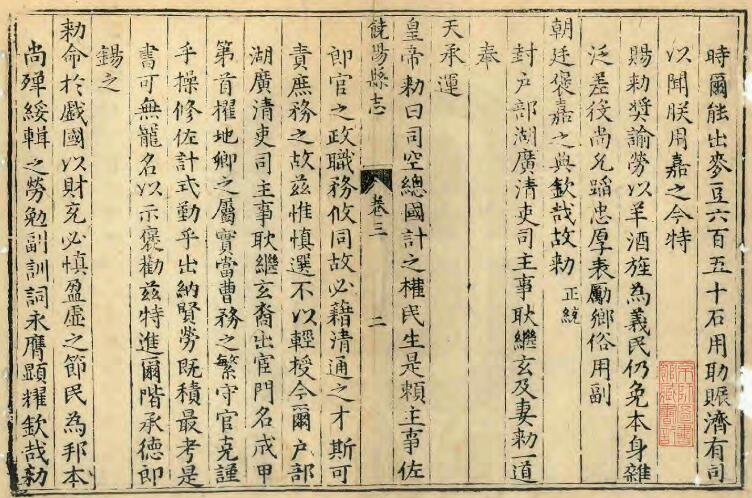 時爾能出麥豆六百五十石用助賑濟有司
以聞朕用嘉之今特
賜勅奬諭勞以羊酒旌為義民仍免本身雜
泛差役尚允蹈忠厚表勵鄉俗用副
朝廷褒嘉之典欽哉故勅 正統
封戶部湖廣清吏司主事耿繼玄及妻勅一道
奉
天承運
皇帝勅曰司空總國計之權民生是賴主事佐
饒陽縣志 卷三 二
郎官之政職務攸同故必籍清通之才斯可
責庶務之故茲惟慎選不以輕授今爾戶部
湖廣清吏司主事耿繼玄裔出宦門名戒甲
第首擢地卿之屬實當曹務之繁守官克謹
乎操修佐計式勤乎出納賢勞既積最考是
書可無寵名以示褒勸茲特進爾階承德郎
錫之
勅命於戲國以財充必慎盈虛之節民為邦本
尚殫綏輯之勞勉副訓詞永膺顯耀欽哉勅